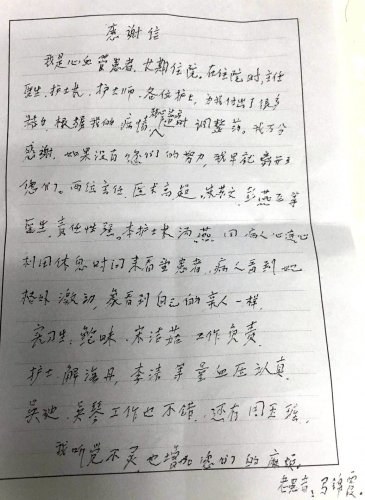 感谢信
我是心血管患者.长期住院.在住院时,主任
医生.护士长.护士师.各位护士.为我付出了很多
精力.根据我的病情 随时调整药.我万分
感谢.如果没有您们的努力,我早就离开
您们.两位主任.医术高超.朱 彭燕 等
医生.责任性强.李护士长 满燕 同病人心连心
利用休息时间来看望患者.病人看到她
格外激动.象看到自己的亲人一样.
实习生.鲍味.宋洁茹 工作负责.
护士 解海丹.李洁 等量血压认真.
吴迪.吴琴工作也不错.还有周玉瑶.
我听觉不灵.也增加您们的麻烦.
老患者.马锦霞.